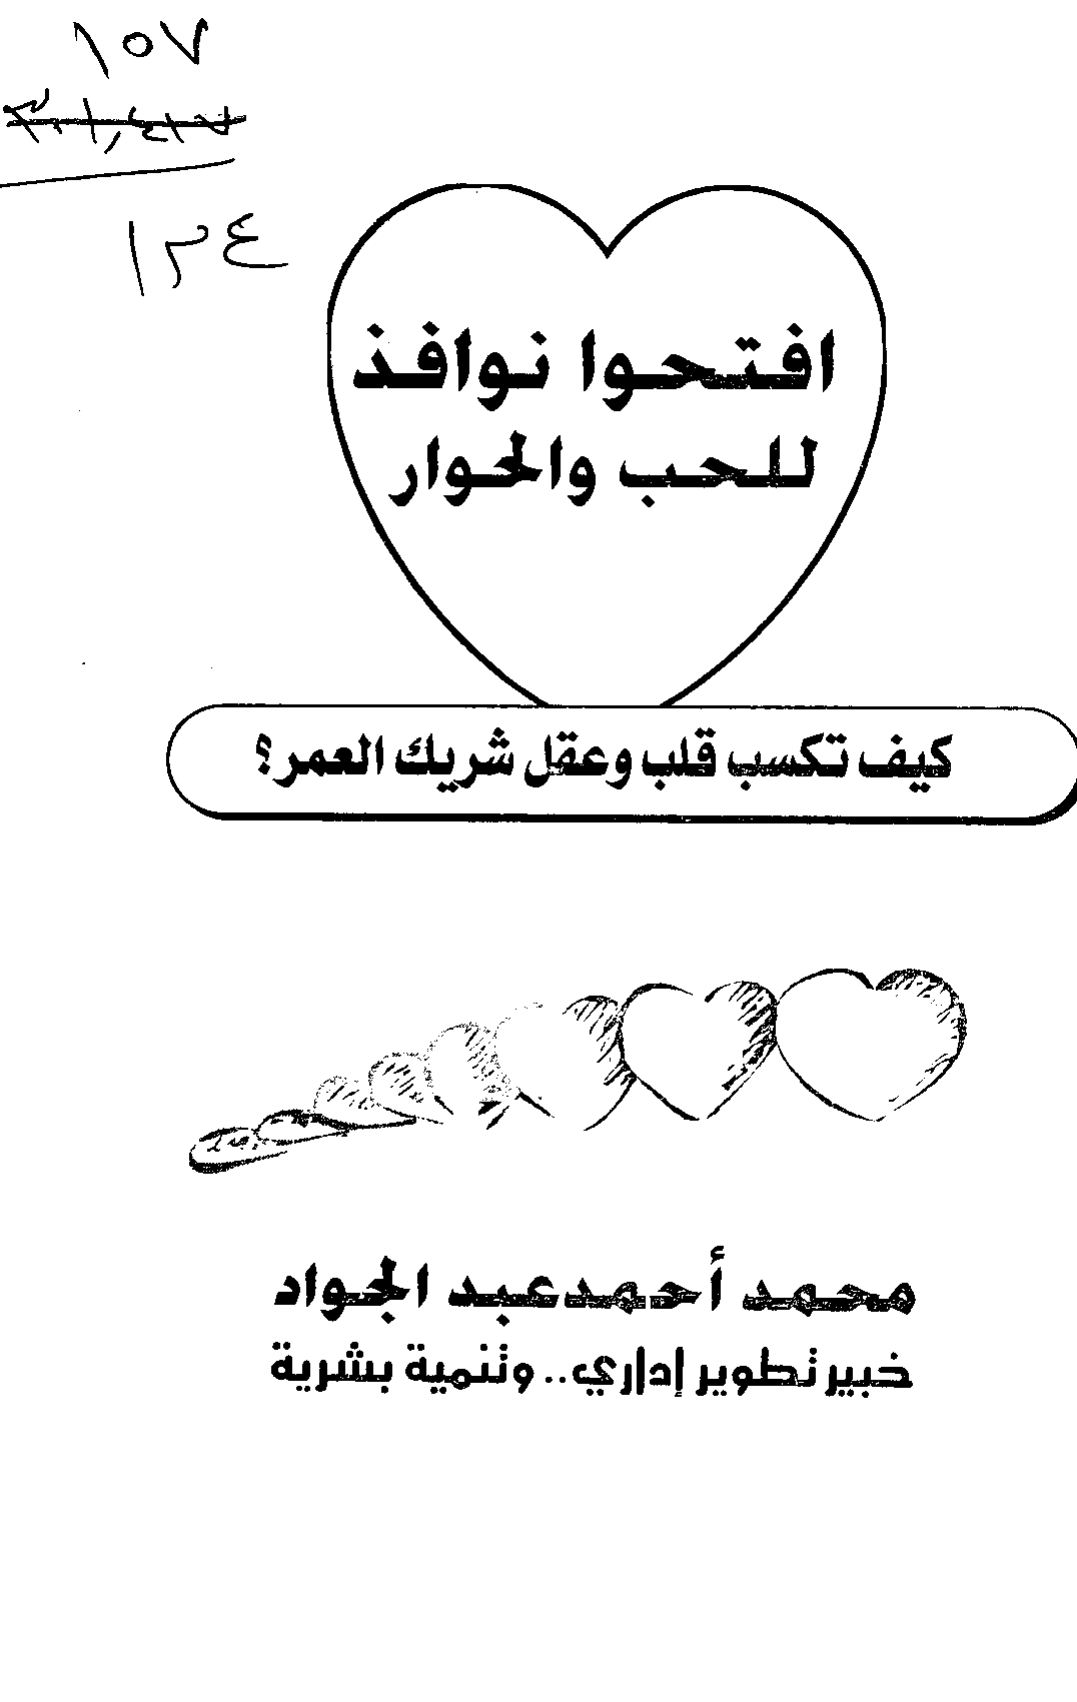 ١٥٧
١٢٤
افتحوا نوافذ
للحب والحوار
كيف تكسب قلب وعقل شريك العمر؟
محمد أحمد عبد الجواد
خبير تطوير إداري.. وتنمية بشرية